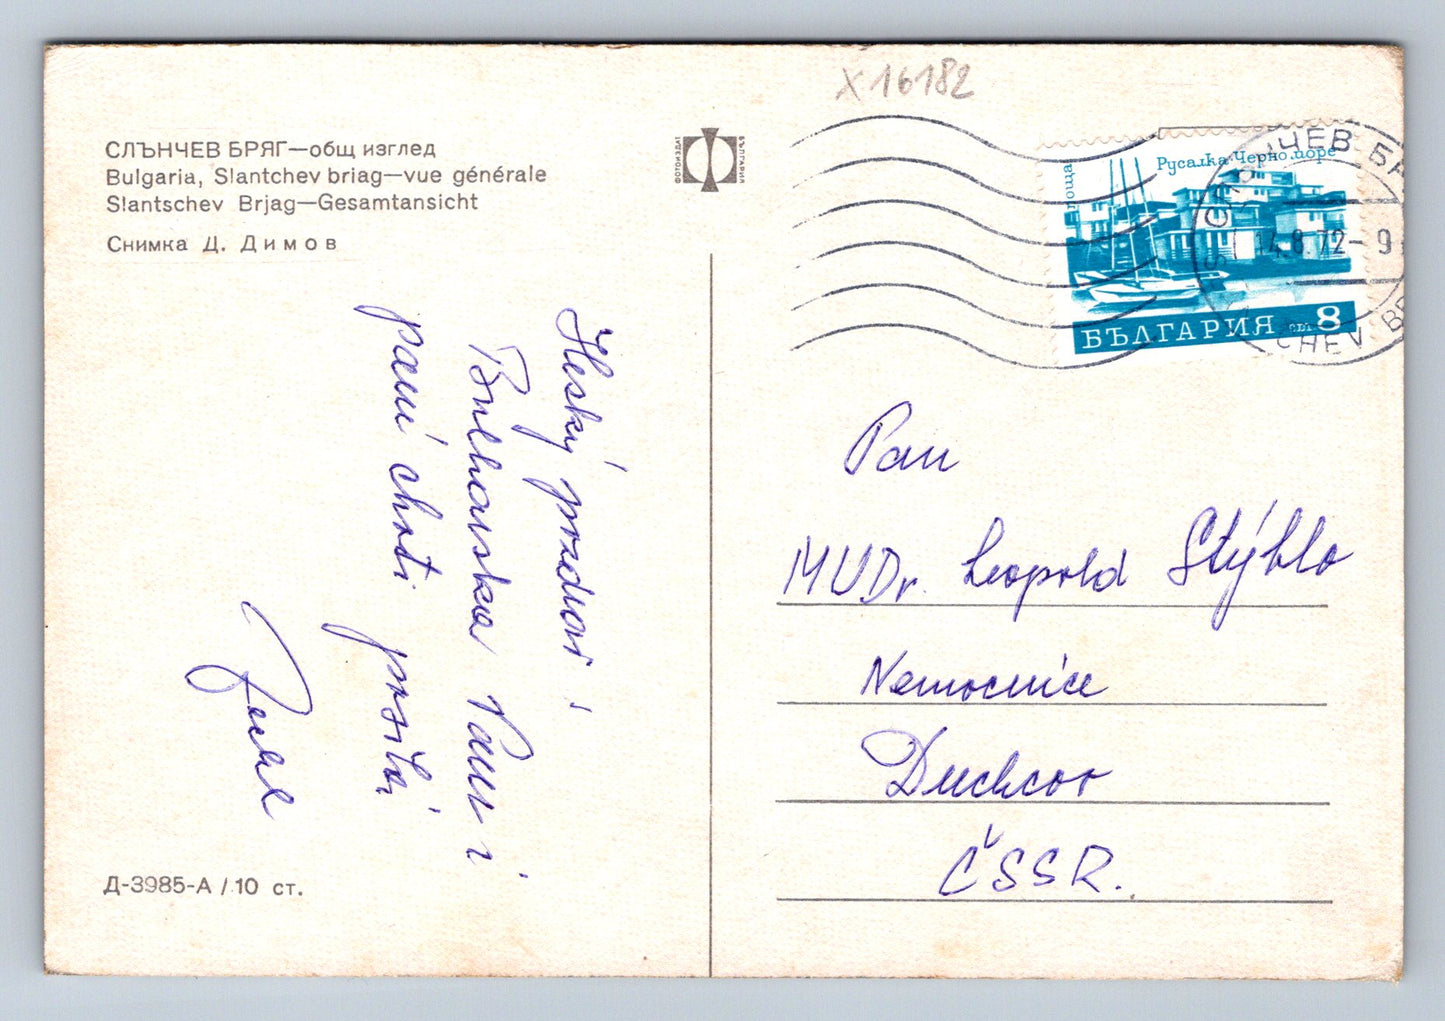 X 16182
СЛЪНЧЕВ БРЯГ—общ изглед
Bulgaria, Slantchev briag—vue générale
Slantschev Brjag—Gesamtansicht
Снимка Д. Димов
ФОТОИЗДАТ
БЪЛГАРИЯ
поща
Русалка Черно море
БЪЛГАРИЯ 8
СЛЪНЧЕВ БР
14.8.72-9
CHEV BR
Hezký pozdrav i
Bulharska Vám i
paní choti posílá
Pan
MUDr. Leopold Stýblo
Nemocnice
Duchcov
ČSSR.
Д-3985-А / 10 ст.